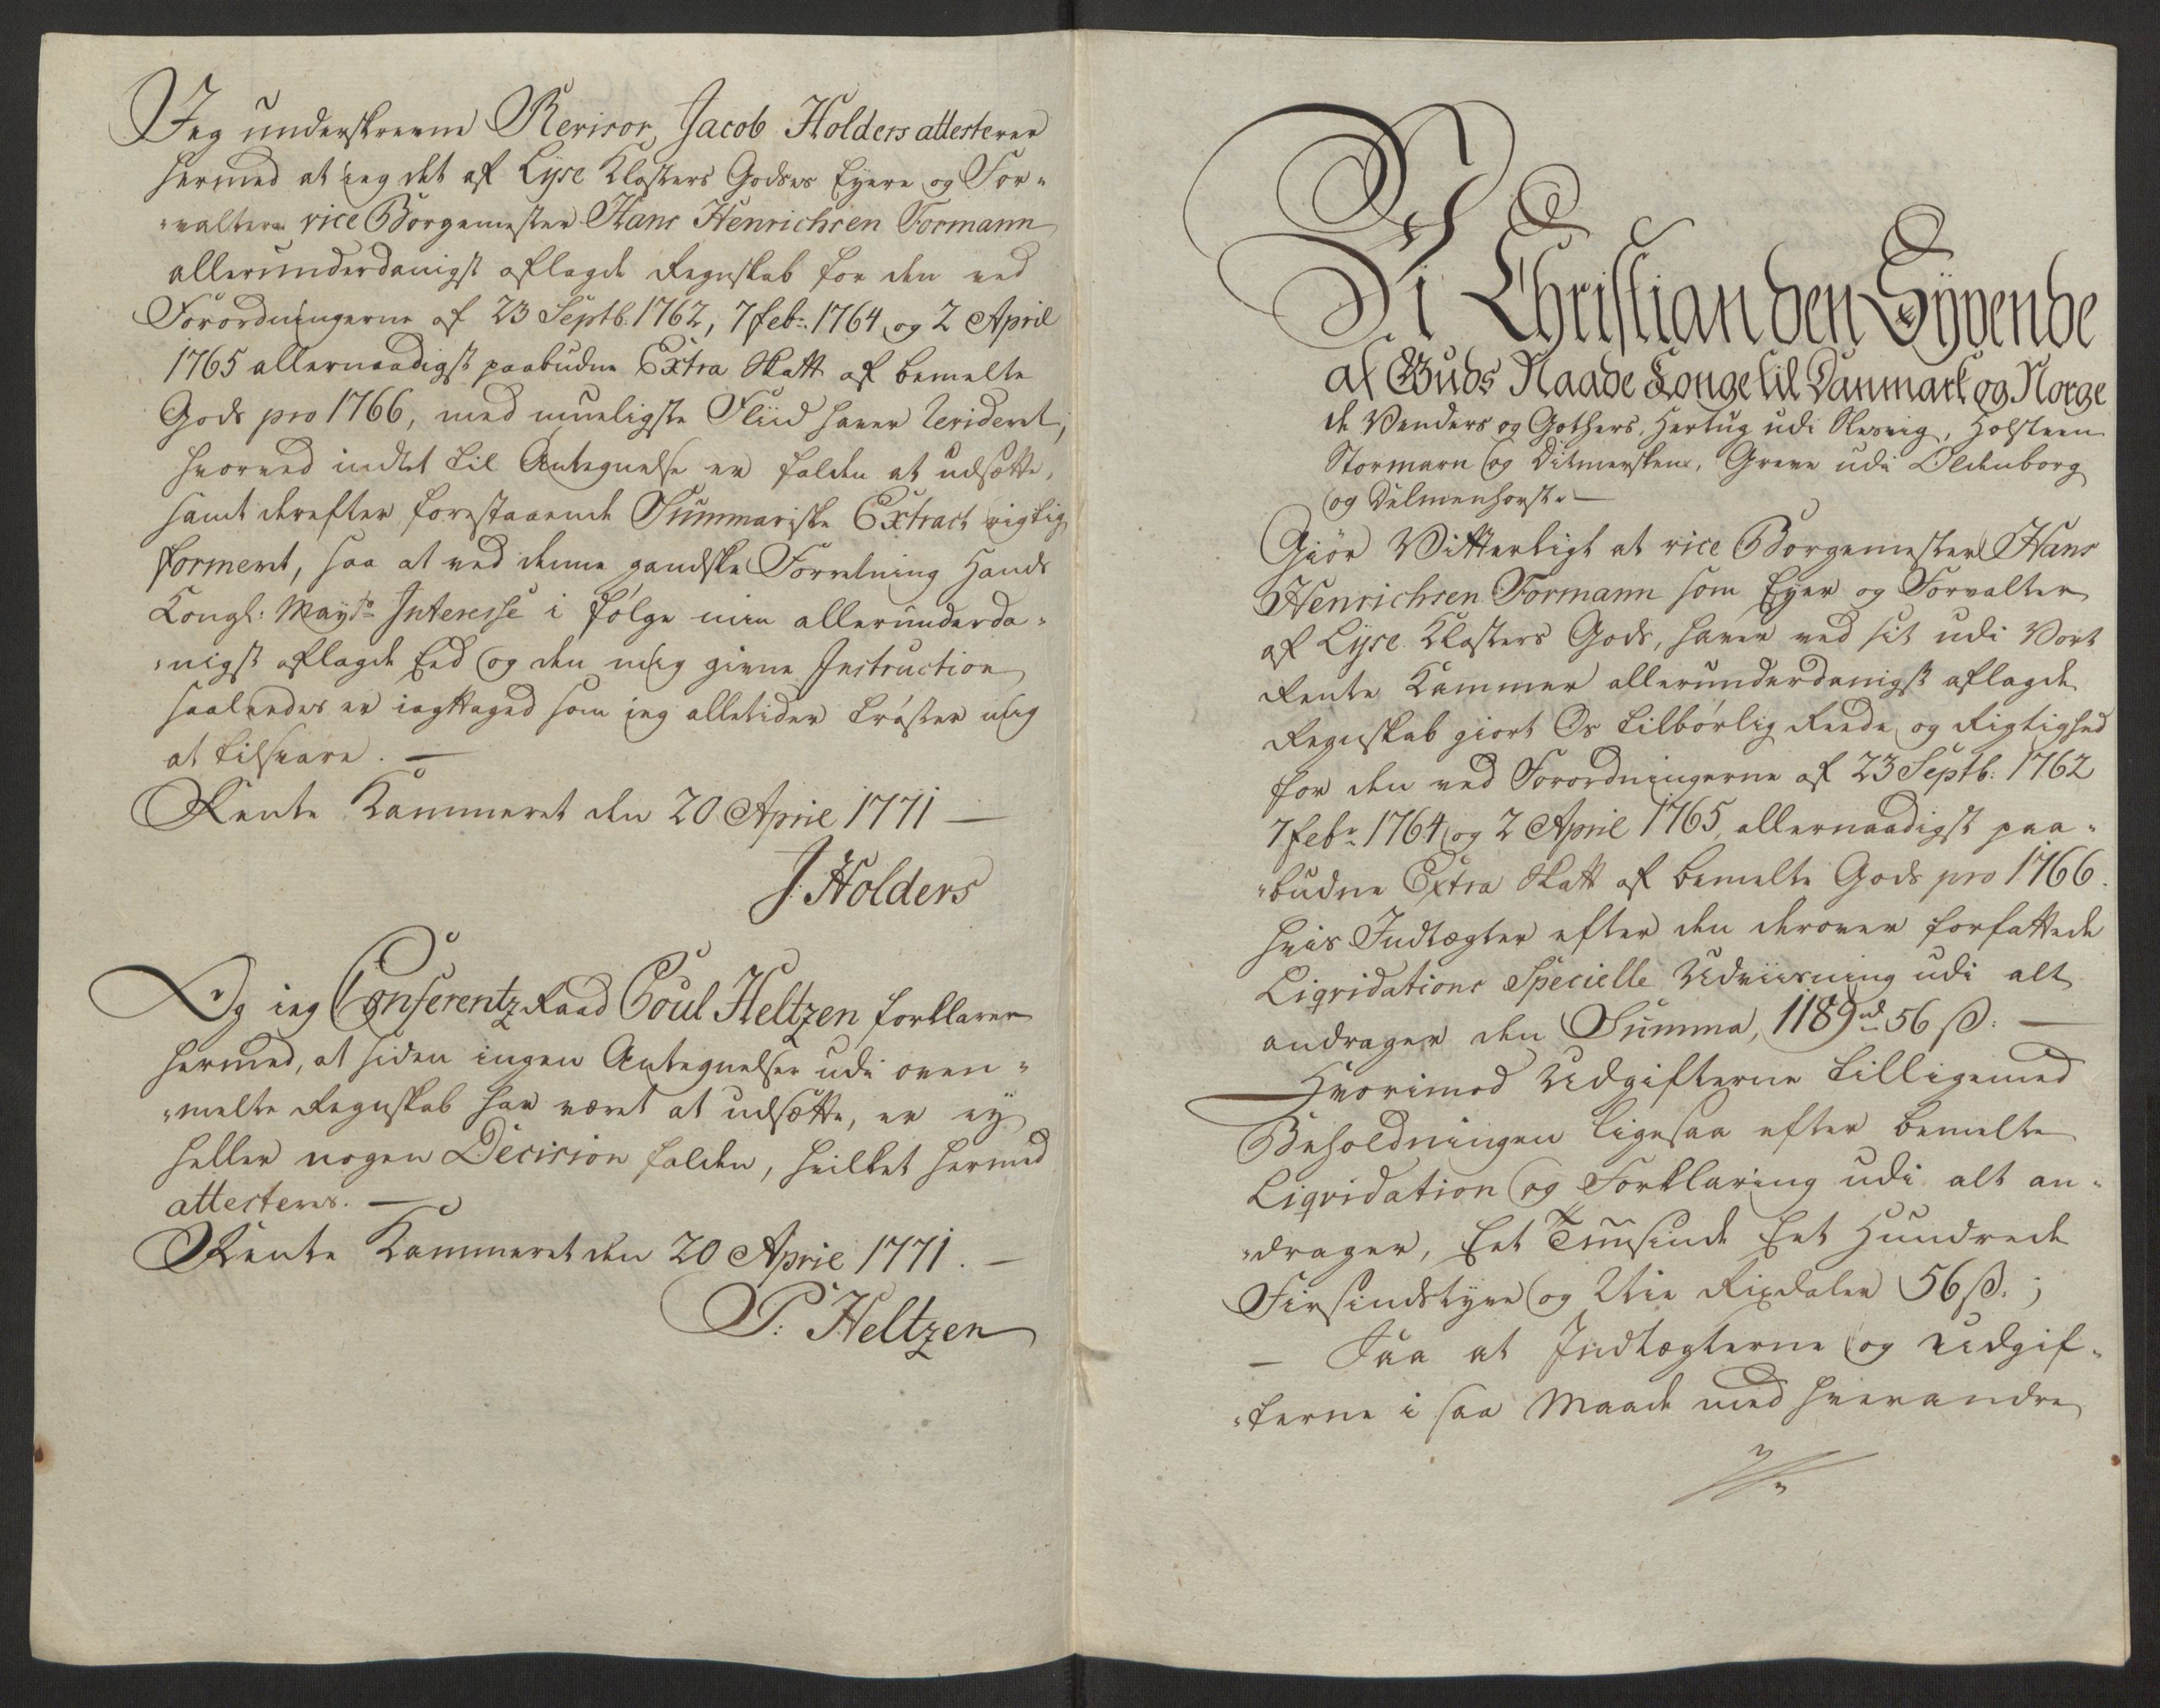 Jeg underskrevne Revisor, Jacob Holders attesterer
hermed at jeg det af Lyse Klosters Godses Eyere og For-
-valtere vice Borgemester Hans Henrichsen Formann
allerunderdanigst aflagde Regnskab for den ved
Forordningerne af 23 Septb: 1762, 7 febr: 1764 og 2 April
1765 allernaadigst paabudne Extra Skatt af bemelte
Gods pro 1766, med mueligste Fliid haver revideret,
hvorved indtet til Antegnelse er falden at udsætte,
samt derefter forestaaende Summariske Extract rigtig
formeret, saa at ved denne gandske Forretning Hands
Kongl: Mayts Interesse i følge min allerunderda-
-nigst aflagde Eed og den mig givne Instruction
saaledes er iagttaged som jeg alletider trøster mig
at tilsvare. —
Rente Kammeret den 20 April 1771 —
J. Holders
Og jeg Conferentz Raad Poul Heltzen forklarer
hermed, at siden ingen Antegnelser udi oven-
-melte Regnskab har været at udsætte, er ey
heller nogen Decision falden, hvilket hermed
attesteres. —
Rente Kammeret den 20 April 1771. —
P: Heltzen
Vi Christian den Syvende
af Guds Naade Konge til Danmark og Norge
de Venders og Gothers, Hertug udi Slesvig, Holsteen
Stormarn og Ditmersken, Greve udi Oldenborg
og Delmenhorst. —
Giør Vitterligt at vice Borgemester Hans
Henrichsen Formann som Eyer og Forvalter
af Lyse Klosters Gods, haver ved sit udi Vort
Rente Kammer allerunderdanigst aflagde
Regnskab giort Os tilbørlig Reede og Rigtighed
for den ved Forordningerne af 23 Septb: 1762
7 febr: 1764 og 2 April 1765 allernaadigst paa-
-budne Extra Skatt af bemelte Gods pro 1766.
hvis Indtægter efter den derover forfattede
Liqvidations Specielle Udviisning udi alt
andrager den Summa, 1189 rd 56 ß: —
Hvorimod Udgifterne tilligemed
Beholdningen ligesaa efter bemelte
Liqvidation og Forklaring udi alt an-
-drager, Eet Tuusinde Eet Hundrede
Firsindstyve og Nie Rixdaler 56 ß. ;
— Saa at Indtægterne og Udgif-
-terne i saa Maade med hverandre